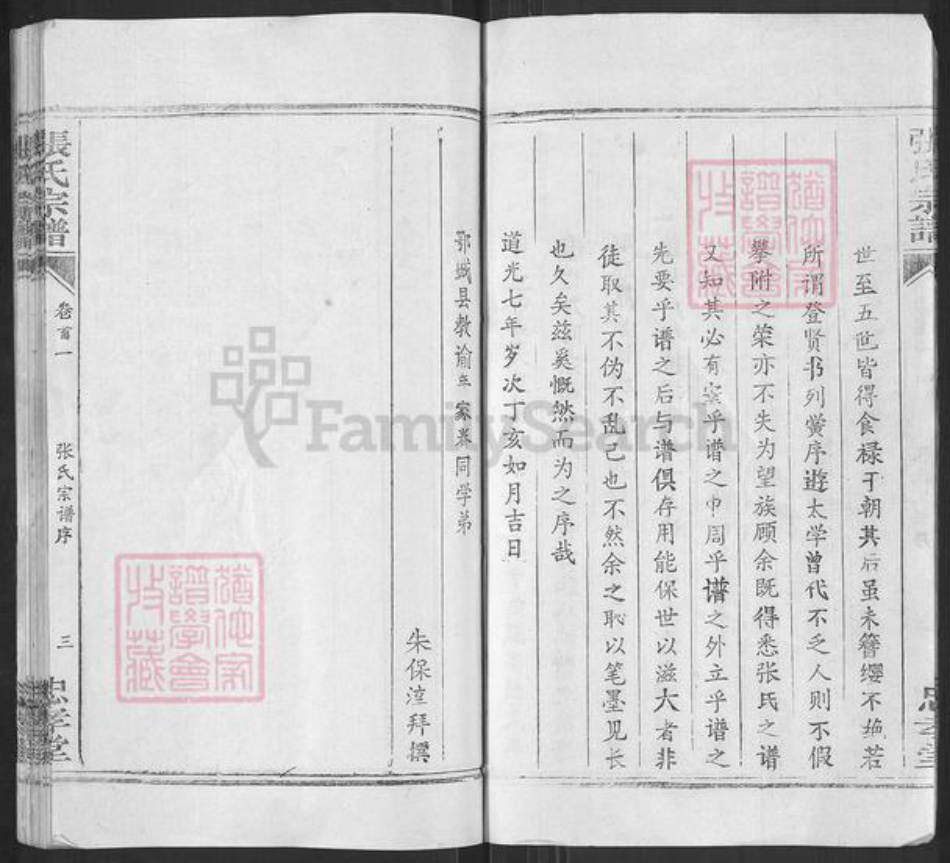 张氏宗谱
世至五世皆得食禄于朝其后虽未簪缨不绝若
所谓登贤书列黉序遊太学曾代不乏人则不假
攀附之荣亦不失为望族顾余既得悉张氏之谱
又知其必有寔乎谱之中周乎谱之外立乎谱之
先要乎谱之后与谱俱存用能保世以滋大者非
徒取其不伪不乱己也不然余之恥以笔墨见长
也久矣兹奚慨然而为之序哉
道光七年岁次丁亥如月吉日
鄂城县教谕年家眷同学弟
朱保 拜撰
張氏宗譜
卷首一
张氏宗谱序
三
忠孝堂
譜學會
收藏
譜學會
收藏
FamilySearch